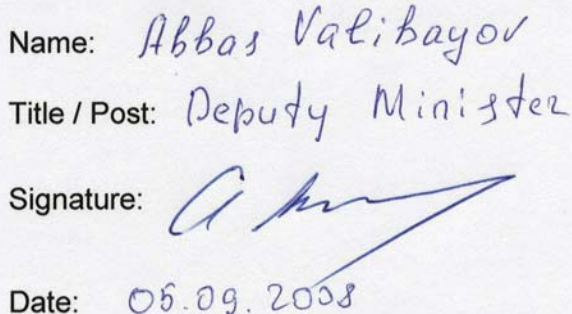 Name: Abbas Valibayov
Title / Post: Deputy Minister
Signature:
Date: 05.09.2008